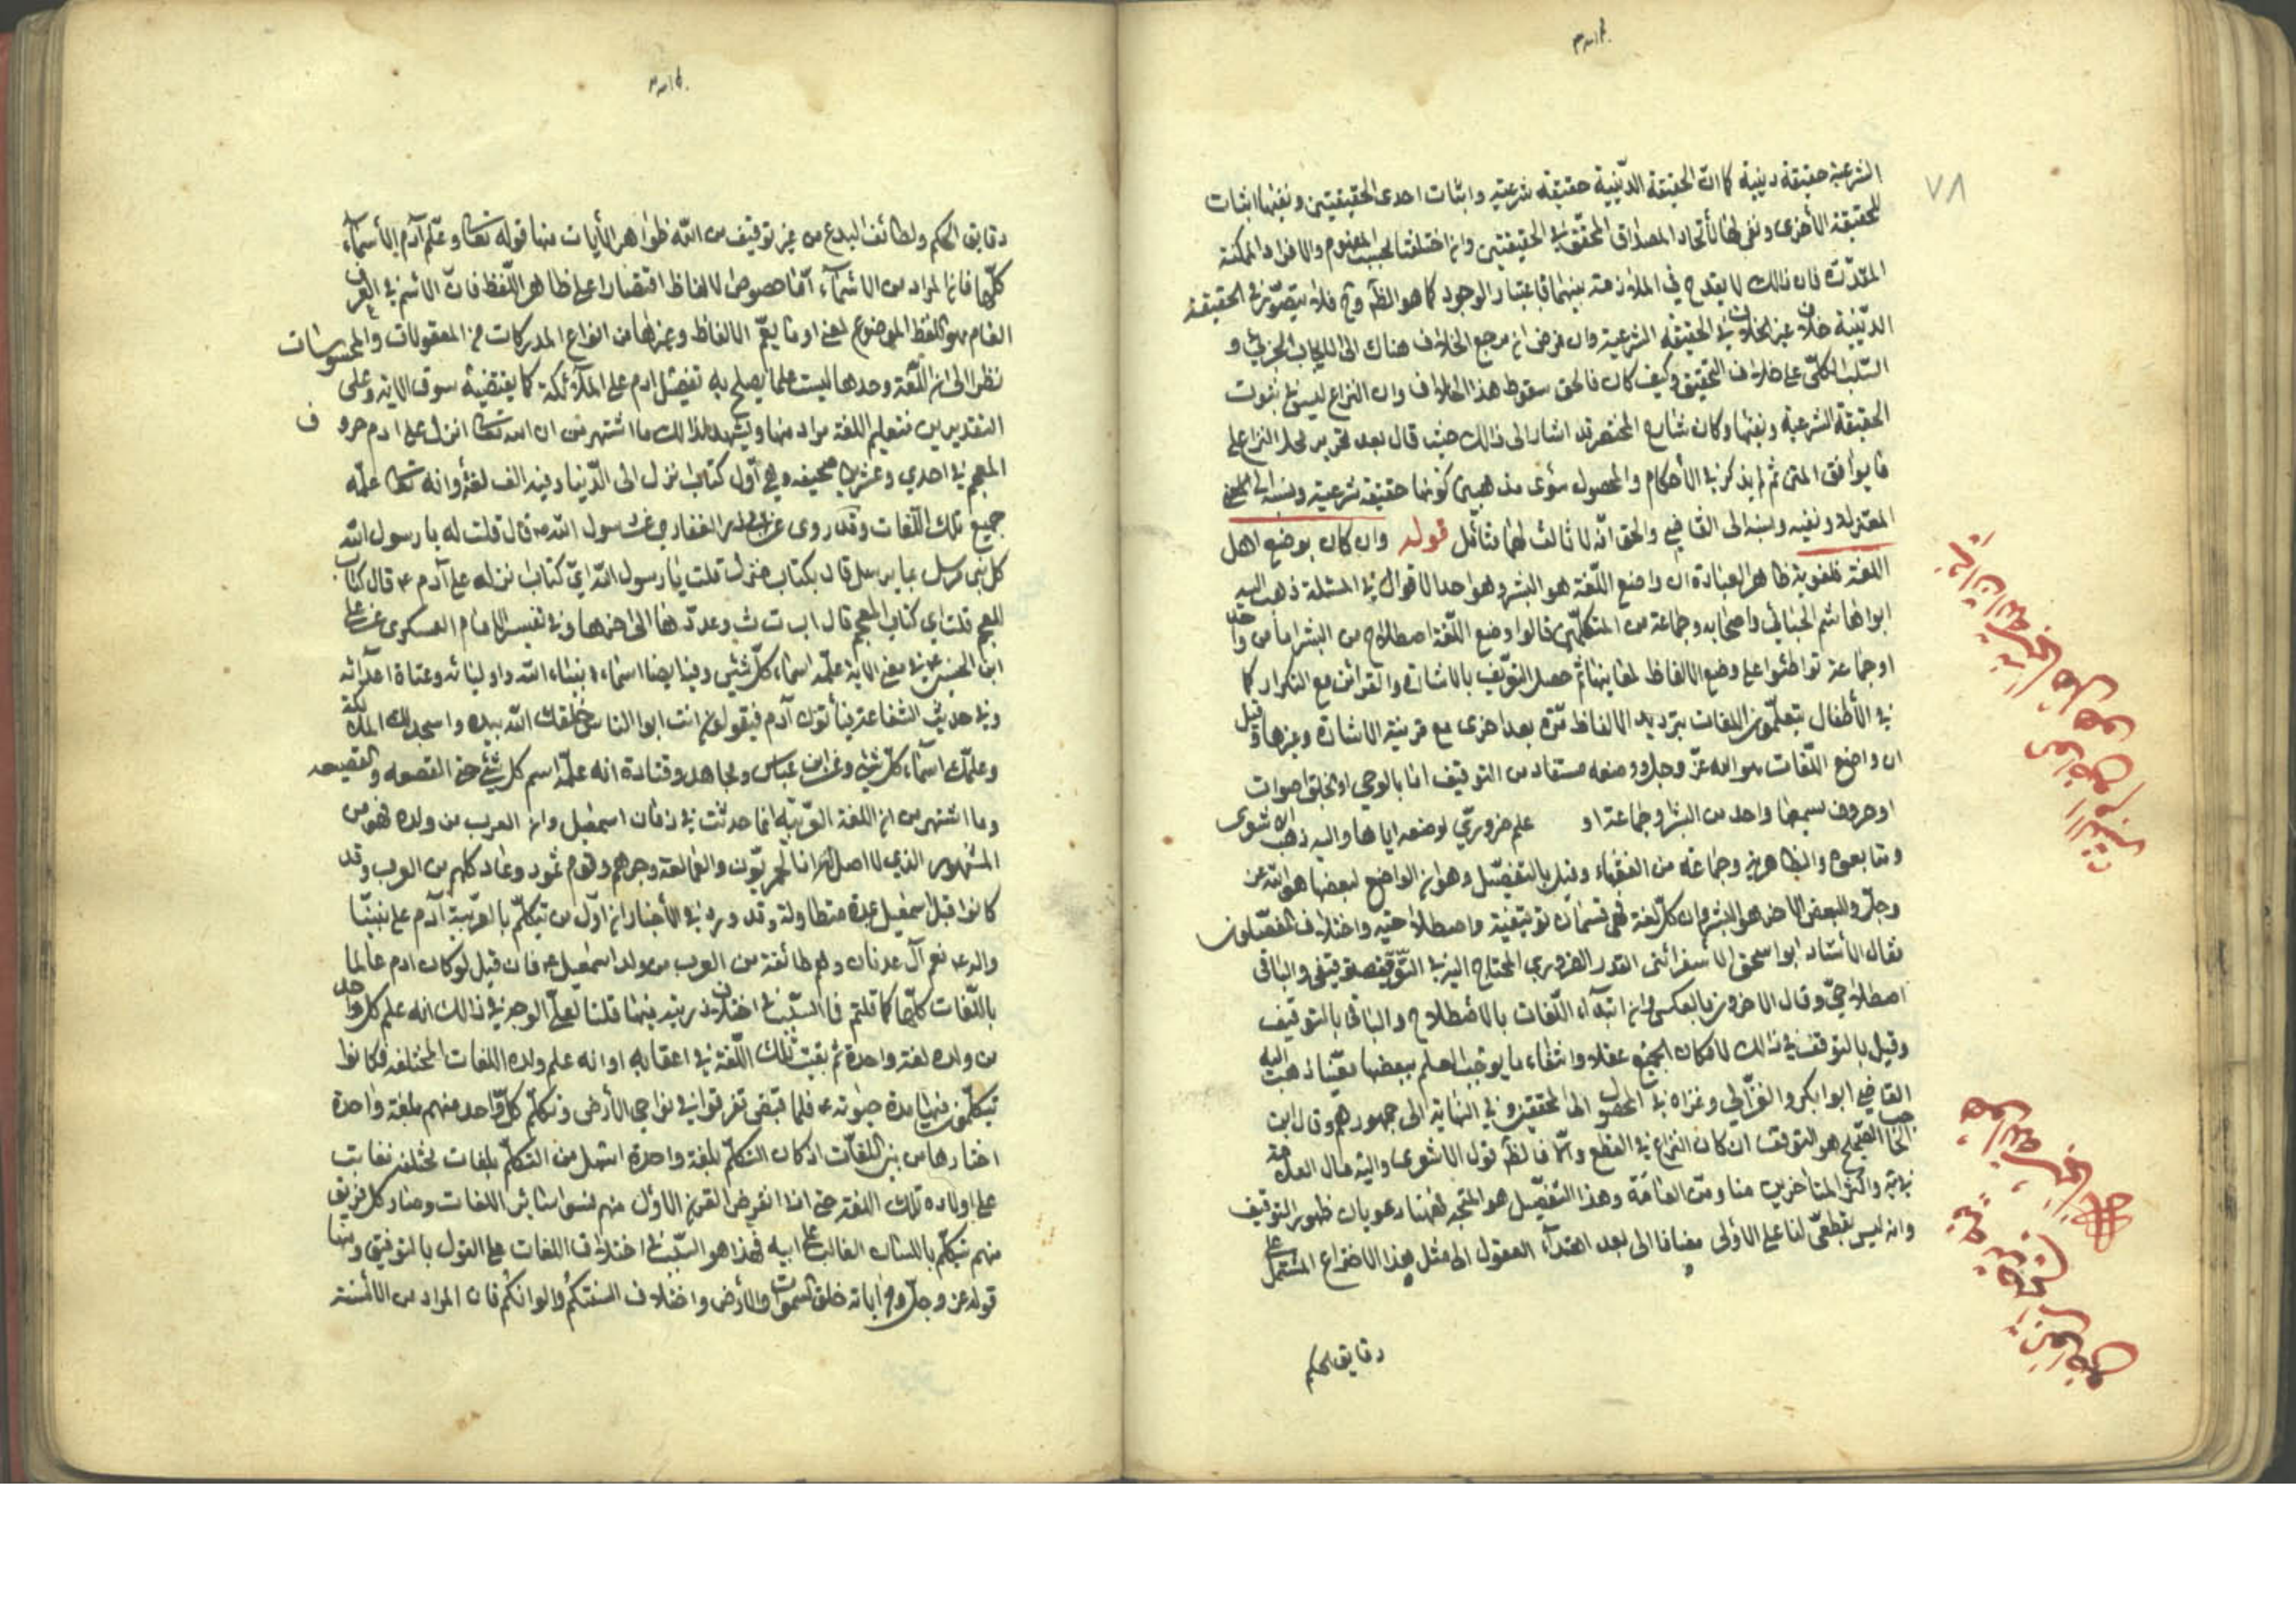 ٧٨
الشرعية حقيقة دينية كما ان الحقيقة الدّينية حقيقة شرعية واثبات احدى الحقيقتين ونفيها اثبات
للحقيقة الأخرى ونفى لها لأتحاد المصداق المحقق في الحقيقتين وان اختلفتا بحسب المفهوم والافراد الممكنة
المقدّرة فان ذلك لا يقدح في الملازمة بينهما باعتبار الوجود كما هو الظّم وح فلا يتصوّر في الحقيقة
الدّينية خلاف غير الخلاف في الحقيقة الشرعية وان فرض ان مرجع الخلاف هناك الى الايجاب الجزئي و
السّلب الكلّي على خلاف التحقيق وكيف كان فالحق سقوط هذا الخلاف وان النزاع ليس في ثبوت
الحقيقة الشرعية ونفيها وكان شارح المختصر قد اشار الى ذلك حيث قال بعد تحرير محل النزاع على
ما يوافق المتن ثم لم يذكر في الأحكام والمحصول سوى مذهبين كونها حقيقة شرعية ونسبه الى
المعتزلة ونفيه ونسبه الى القاضي والحق انّه لا ثالث لهما فتأمّل قوله وان كان بوضع اهل
اللغة فلغوية ظاهر العبارة ان واضع اللّغة هو البشر وهو احد الاقوال في المسئلة ذهب اليه
ابوا هاشم الجبائي واصحابه وجماعة من المتكلّمين قالوا وضع اللّغة اصطلاح من البشر اما من واحد
او جماعة تواطئوا على وضع الالفاظ لمعانيها ثم حصل التعريف بالاشارة والقرائن مع التكرار كما
في الأطفال يتعلّمون اللغات بترديد الالفاظ مرّة بعد اخرى مع قرينة الاشارة وغيرها وقيل
ان واضع اللّغات هو الله عزّ وجل ووضعه مستفاد من التوقيف اما بالوحي او بخلق اصوات
او حروف يسمعها واحد من البشر او جماعة او علم ضروريّ لوضعه اياها واليه ذهب الاشعرى
ومتابعوه والظاهرية وجماعة من الفقهاء وقيل بالتفصيل وهو ان الواضع لبعضها هو الله عز
وجلّ وللبعض الاخر هو البشر وان كلّ لغة فهى قسمان توقيفية واصطلاحيّة واختلاف المفصّلون
فقال الأستاد ابوا اسحق الأسفرائنى القدر الضرورى المحتاج اليه في التّوقيف توقيفى والباقى
اصطلاحيّ وقال الاخرون بالعكس وان ابتداء اللّغات بالأصطلاح والباقى بالتوقيف
وقيل بالتوقف في ذلك لامكان الجميع عقلا وانتفاء ما يوجب العلم ببعضها معيّنا ذهب اليه
القاضي ابوا بكر والغزّالي وعزاه في المحصول الى المحققين وفي النهاية الى جمهورهم وقال ابن
الحاجب الصّحيح هو التوقف ان كان النزاع في القطع والّا فالظّم قول الاشعرى واليه مال العلامة
في يه واكثر المتأخرين منا ومن العامّة وهذا التفصيل هو المتّجه فهنا دعويان ظهور التوقيف
وانه ليس بقطعيّ لنا على الأولى مضافا الى بعد اهتداء العقول الى مثل هذا الاختراع المشتمل على
دقايق الحكم
دقايق الحكم ولطائف البدع من غير توقيف من الله ظواهر الأيات منها قوله تعالى وعلّم آدم الأسماء
كلّها فان المراد من الاسماء امّا خصوص الالفاظ اقتصارا على ظاهر اللّفظ فان الاسم في العرف
العام هو اللّفظ الموضوع لمعنى او ما يعمّ الالفاظ وغيرها من انواع المدركات من المعقولات والمحسوسات
نظرا الى ان اللّغة وحدها ليست علما يصلح به تفضيل ادم على الملائكة كما يقتضيه سوق الاية وعلى
التقديرين فتعليم اللغة مراد منها ويشهد لذلك ما اشتهر من ان الله تعالى انزل على ادم حروف
المعجم في احدى وعشرين صحيفة وهي أوّل كتاب نزل الى الدّنيا وفيه الف لغة وانه تعالى علّمه
جميع تلك اللّغات وقد روى عن ابى ذر الغفارى عن رسول الله ص قال قلت له يا رسول الله
كل نبى مرسل بما يرسل قال بكتاب منزل قلت يا رسول الله ايّ كتاب نزله على آدم ع قال كتاب
المعجم قلت اى كتاب المعجم قال ا ب ت ث وعدّدها الى اخرها وفي تفسير الامام العسكرى عن على
ابن الحسين ع في معنى الاية علّمه اسماء كلّ شئ وفيها ايضا اسماء انبياء الله واوليائه وعتاة اعدائه
وفي حديث الشفاعة فيأتون آدم فيقولون انت ابوا الناس خلقك الله بيده واسجد لك الملائكة
وعلّمك اسماء كلّ شئ وعن ابن عبّاس ومجاهد وقتادة انه علّمه اسم كل شئ حتى القصعة والقصيعة
وما اشتهر من ان اللغة العربيّة انما حدثت في زمان اسمعيل وان العرب من ولده فهو من
المشهور الذى لا اصل له انا الحميريّون والعمالقة وجرهم وقوم ثمود وعاد كلهم من العرب وقد
كانوا قبل اسمعيل بمدة متطاولة وقد ورد في الأخبار ان اوّل من تكلّم بالعربيّة آدم على نبيّنا
واله ع نعم آل عدنان وهم طائفة من العرب من ولد اسمعيل ع فان قيل لو كان ادم عالما
باللّغات كلّها كما قلتم فما السّبب في اختلاف ذريته فيها قلنا لعلّ الوجه في ذلك انه علم كل واحد
من ولده لغة واحدة ثم بقيت تلك اللّغة في اعقابه او انه علم ولده اللغات المختلفة فكانوا
يتكلّمون فيها مدة حيوته ع فلما قبض تفرقوا في نواحى الأرض وتكلّم كلّ واحد منهم بلغة واحدة
اختارها من بين اللّغات اذ كان التكلّم بلغة واحدة اسهل من التكلّم بلغات مختلفة فغلبت
على اولاده تلك اللغة حتى اذا انقرض القرن الاوّل منهم نسوا سائر اللغات وصار كل فريق
منهم يتكلّم باللسان الغالب على ابيه فهذا هو السّبب في اختلاف اللغات على القول بالتوقيف ومنها
قوله عز وجلّ ومن أياته خلق السموات والأرض واختلاف السنتكم والوانكم فان المراد من الألسنة